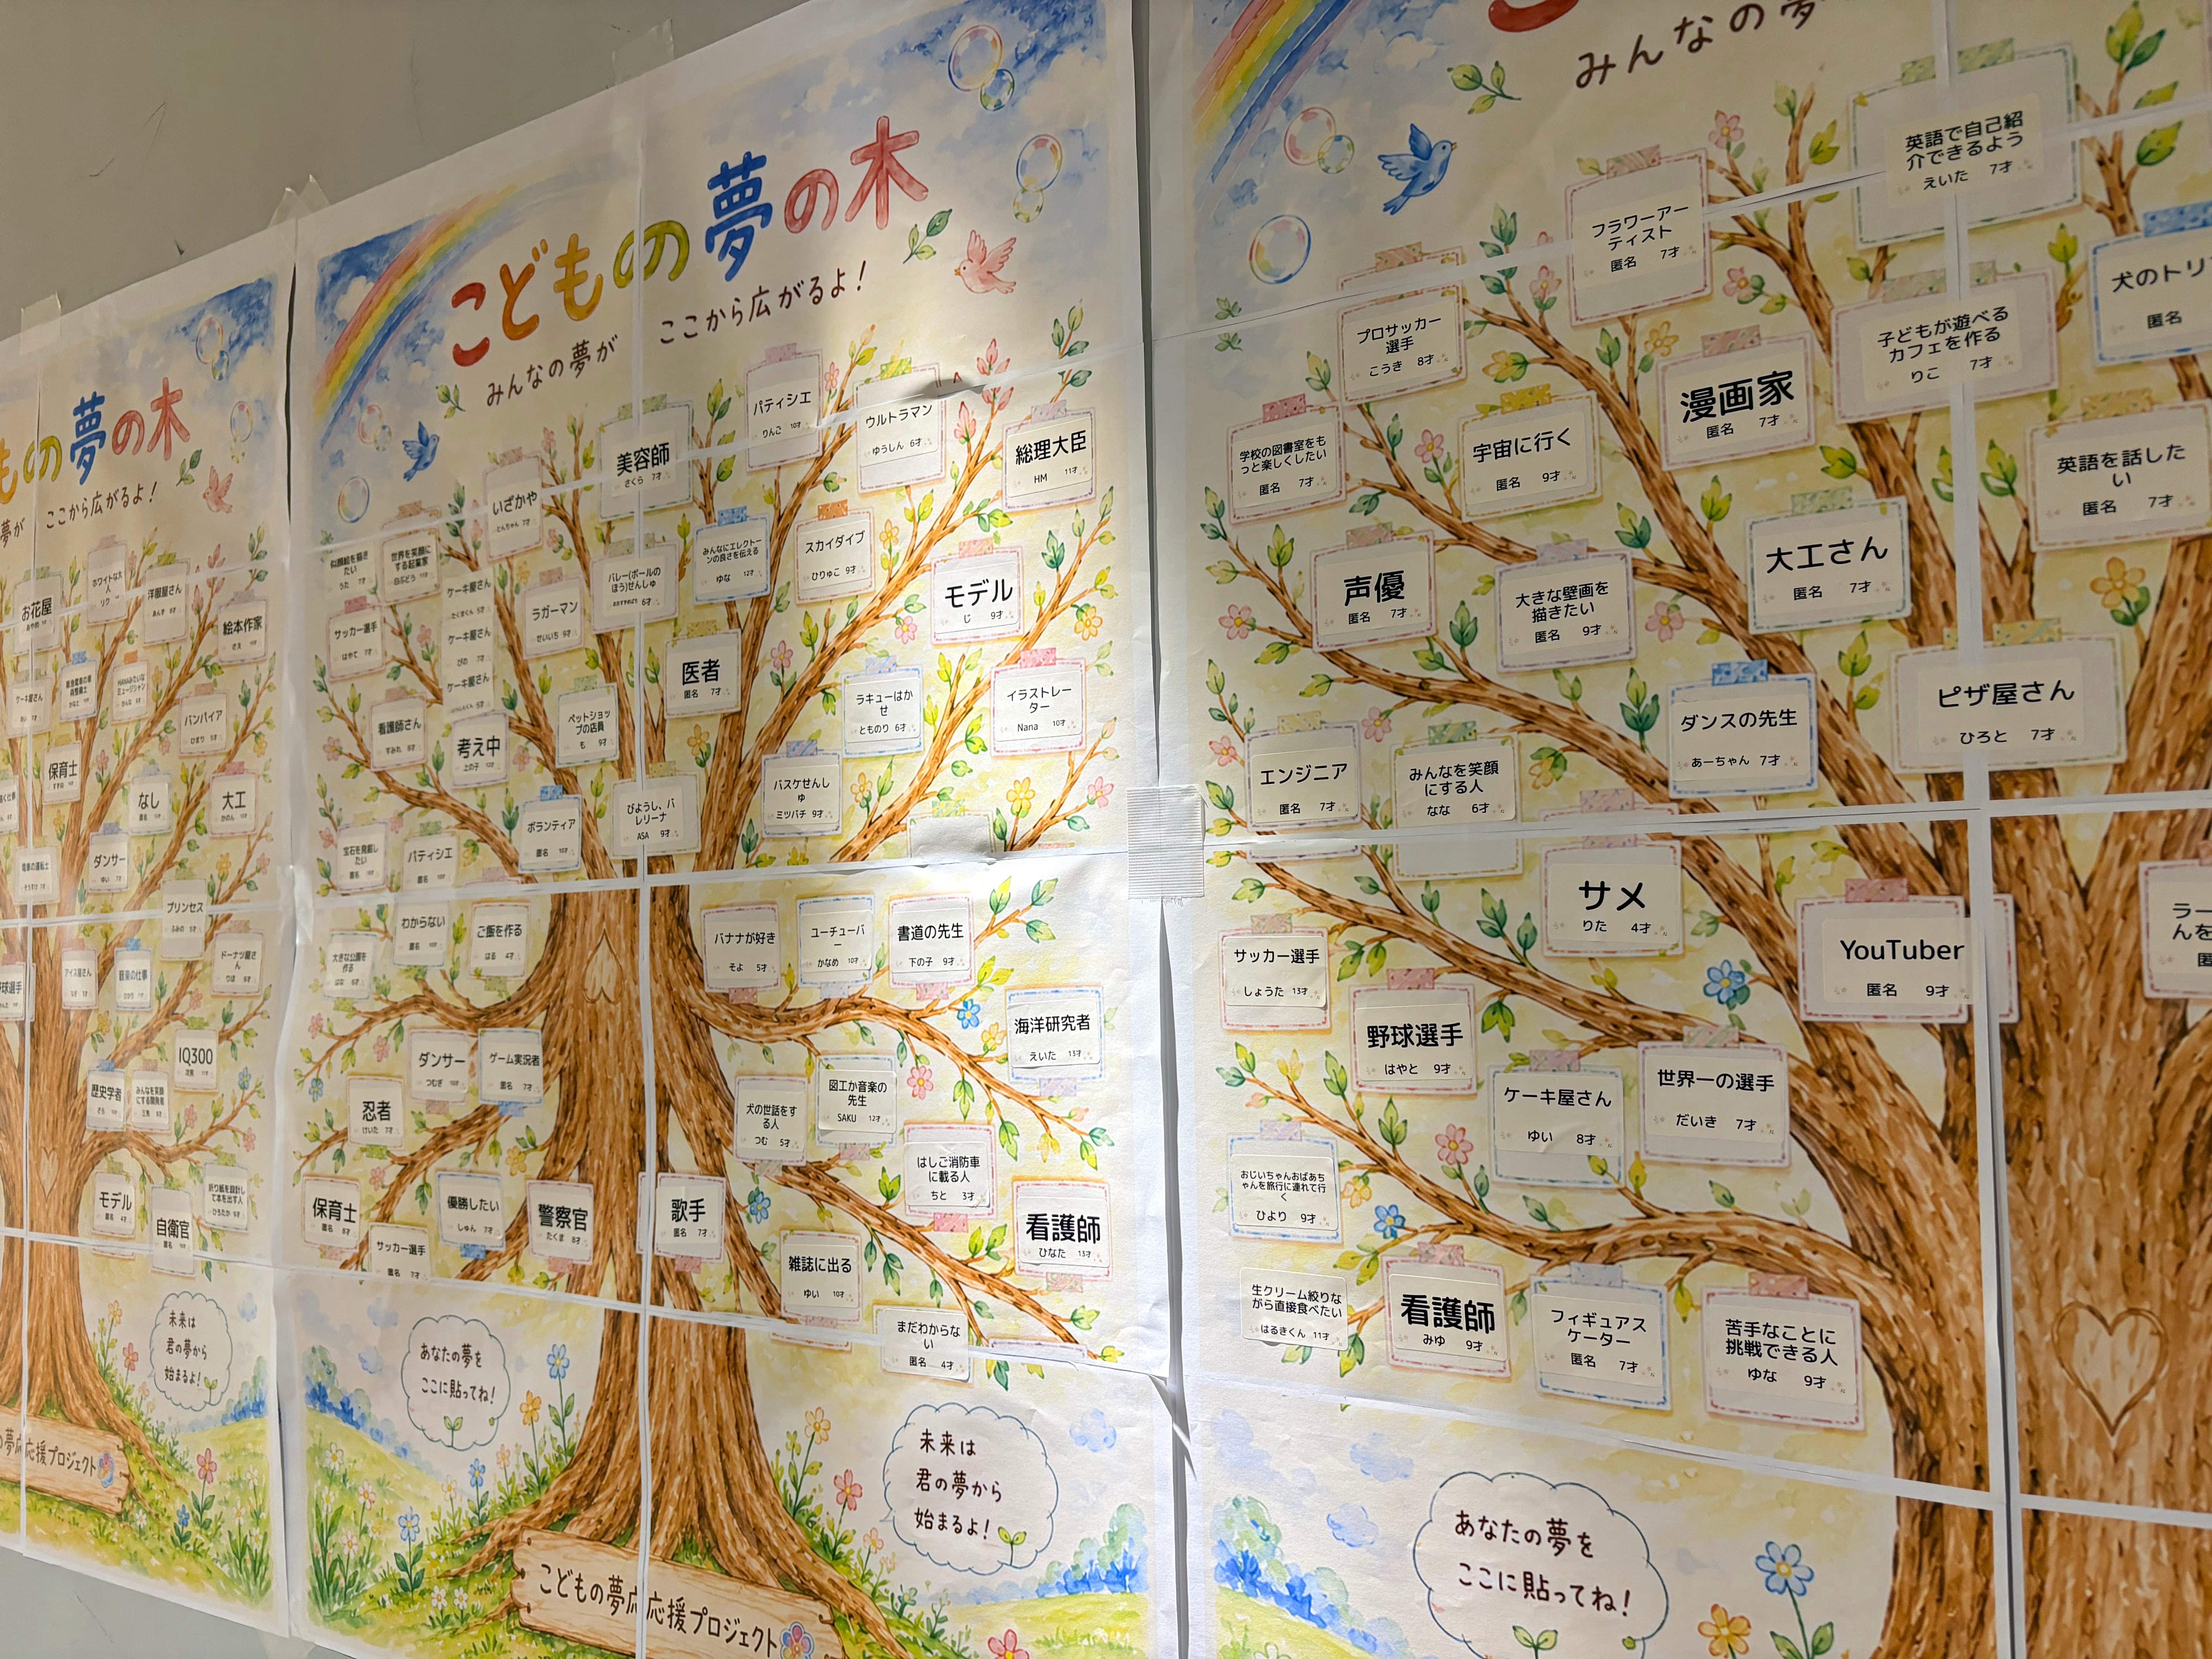 もの夢の木
夢が
ここから広がるよ！
お花屋
ホワイトな大人
洋服屋さん
絵本作家
ケーキ屋さん
バンパイア
保育士
なし
大工
ダンサー
プリンセス
アイス屋さん
ドーナツ屋さん
IQ300
歴史学者
モデル
自衛官
未来は
君の夢から
始まるよ！
応援プロジェクト
こどもの夢の木
みんなの夢が
ここから広がるよ！
パティシエ
りんご 10才
ウルトラマン
ゆうしん 6才
総理大臣
HM 11才
美容師
さくら 7才
いざかや
似顔絵を描き
たい
うた 7才
世界を笑顔に
する起業家
みんなにエレクトー
ンの良さを伝える
ゆな 12才
スカイダイブ
ひりゅこ 9才
モデル
じ 9才
ケーキ屋さん
ケーキ屋さん
ぴの 7才
ケーキ屋さん
サッカー選手
はやて 7才
ラガーマン
せいいち 9才
バレー(ボールの
ほう)せんしゅ
6才
医者
匿名 7才
ラキューはか
せ
とものり 6才
イラストレー
ター
Nana 10才
看護師さん
すみれ 6才
考え中
上の子 12才
ペットショッ
プの店員
も 9才
バスケせんし
ゅ
ミツバチ 9才
ボランティア
匿名 10才
びようし、バ
レリーナ
ASA 9才
宝石を発掘し
たい
パティシエ
わからない
ご飯を作る
はる 4才
大きな公園を
作る
はな 6才
バナナが好き
そよ 5才
ユーチューバ
ー
かなめ 10才
書道の先生
下の子 9才
海洋研究者
えいた 13才
ダンサー
つむぎ 10才
ゲーム実況者
匿名 7才
忍者
けいた 7才
犬の世話をす
る人
つむ 5才
図工か音楽の
先生
SAKU 12才
はしご消防車
に載る人
ちと 3才
保育士
匿名 8才
優勝したい
しゅん 7才
警察官
たくま 8才
歌手
匿名 7才
看護師
ひなた 13才
サッカー選手
匿名 7才
雑誌に出る
ゆい 10才
まだわからな
い
匿名 4才
あなたの夢を
ここに貼ってね！
未来は
君の夢から
始まるよ！
こどもの夢応応援プロジェクト
みんなの夢
英語で自己紹
介できるよう
えいた 7才
フラワーアー
ティスト
匿名 7才
犬のトリ
匿名
プロサッカー
選手
こうき 8才
子どもが遊べる
カフェを作る
りこ 7才
漫画家
匿名 7才
学校の図書室をも
っと楽しくしたい
匿名 7才
宇宙に行く
匿名 9才
英語を話した
い
匿名 7才
声優
匿名 7才
大きな壁画を
描きたい
匿名 9才
大工さん
匿名 7才
ピザ屋さん
ひろと 7才
ダンスの先生
あーちゃん 7才
エンジニア
匿名 7才
みんなを笑顔
にする人
なな 6才
サメ
りた 4才
YouTuber
匿名 9才
ラー
んを
サッカー選手
しょうた 13才
野球選手
はやと 9才
ケーキ屋さん
ゆい 8才
世界一の選手
だいき 7才
おじいちゃんおばあち
ゃんを旅行に連れて行
く
ひより 9才
生クリーム絞りな
がら直接食べたい
はるきくん 11才
看護師
みゆ 9才
フィギュアス
ケーター
匿名 7才
苦手なことに
挑戦できる人
ゆな 9才
あなたの夢を
ここに貼ってね！